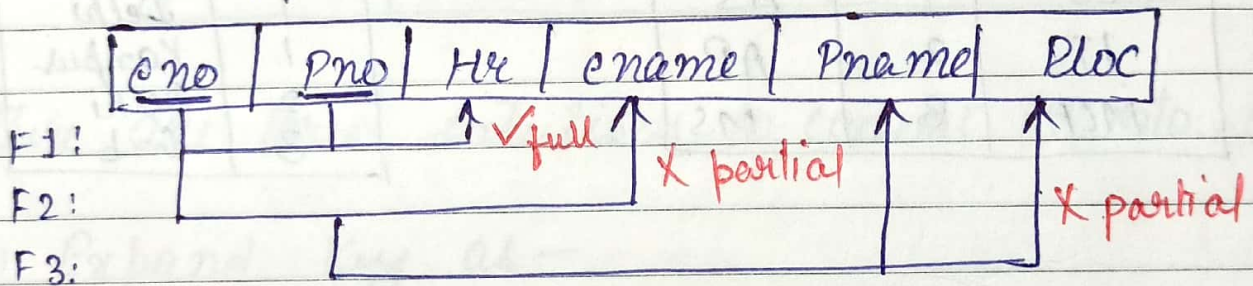 eno Pno Hr ename Pname Ploc
F1: ✓full
X partial
F2: X partial
F3: